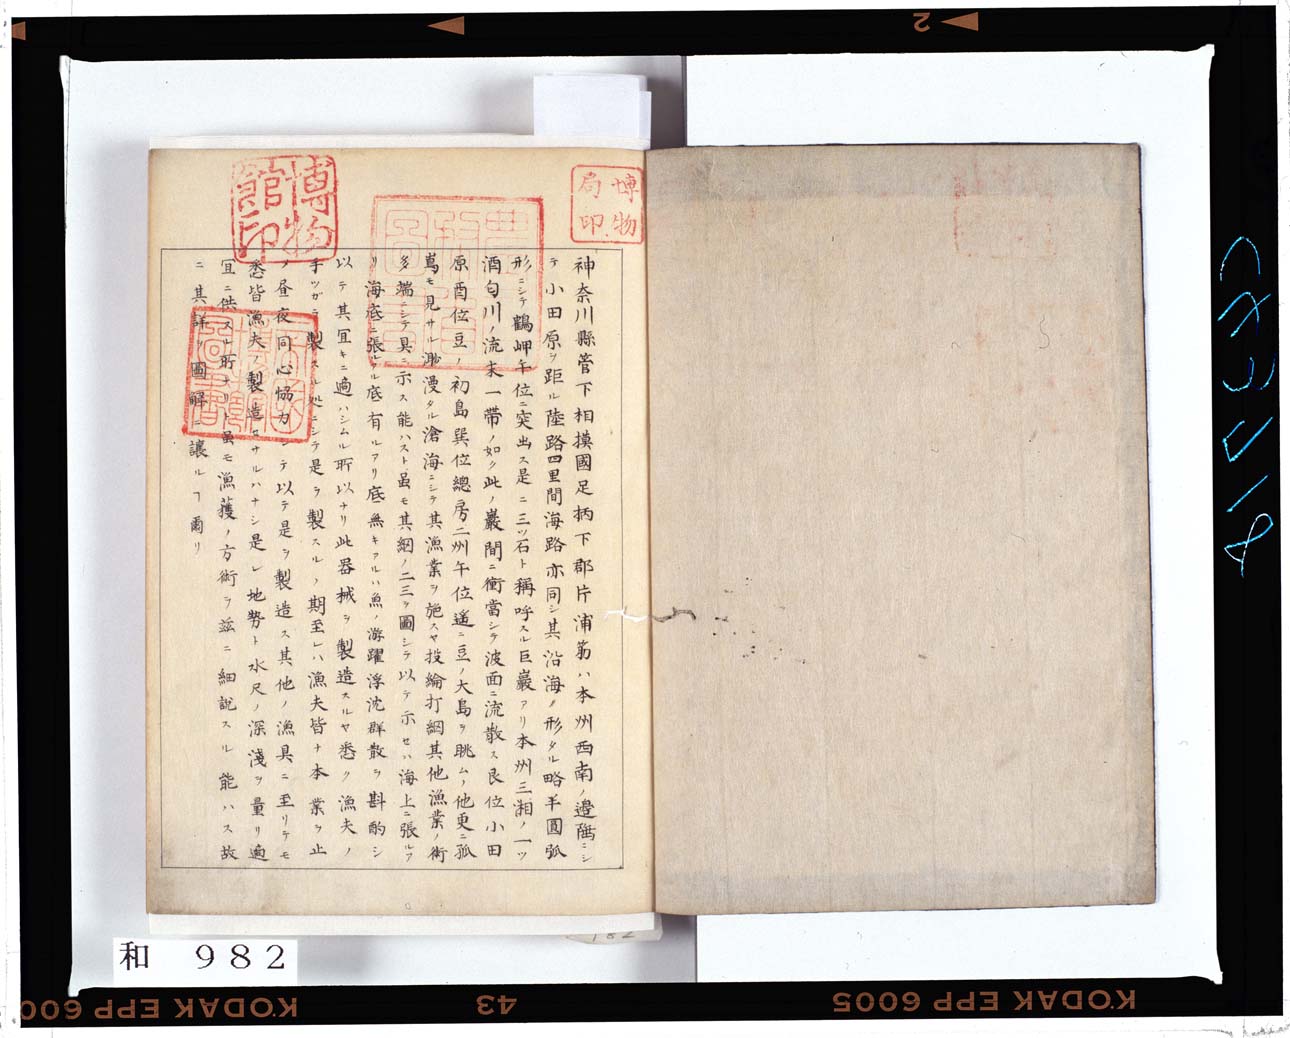 博物
局印
博物
館印
神奈川縣管下相摸國足柄下郡片浦筋ハ本州西南ノ邉陬ニシ
テ小田原ヲ距ル陸路四里間海路亦同シ其沿海ノ形タル略半圓弧
形ニシテ鶴岬午位ニ突出ス是ニ三ツ石ト稱呼スル巨巖アリ本州三湘ノ一ツ
酒匂川ノ流末一帶ノ如ク此ノ巖間ニ衝當シテ波面ニ流散ス艮位小田
原酉位豆ノ初島巽位總房二州午位遙ニ豆ノ大島ヲ眺ム他更ニ孤
嶌モ見サル渺漫タル滄海ニシテ其漁業ヲ施スヤ投綸打網其他漁業ノ術
多端ニシテ具ニ示ス能ハスト虽モ其網ノ二三ヲ圖シテ以テ示セハ海上ニ張ルア
リ海底ニ張ルアル底有ルアリ底無キアルハ魚ノ游躍浮沈群散ヲ斟酌シ
以テ其冝キニ適ハシムル所以ナリ此器械ヲ製造スルヤ悉ク漁夫ノ
手ツガニ製スル処ニシテ是ヲ製スルノ期至レハ漁夫皆ナ本業ヲ止
メ昼夜同心恊力シテ以テ是ヲ製造ス其他ノ漁具ニ至リテモ
悉皆漁夫ノ製造セサルハナシ是レ地勢ト水尺ノ深淺ヲ量リ適
冝ニ供スル所ナリト虽モ漁獲ノ方術ヲ茲ニ細說スル能ハス故
ニ其詳ヲ圖解ニ讓ルヿ爾リ
和 982
KODAK EPP 6005
43
KODAK EPP 600
2